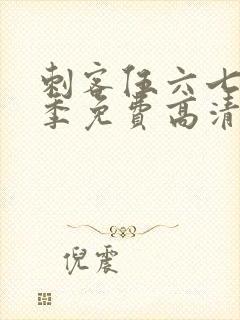 刺客伍六七
季免费高清
倪震